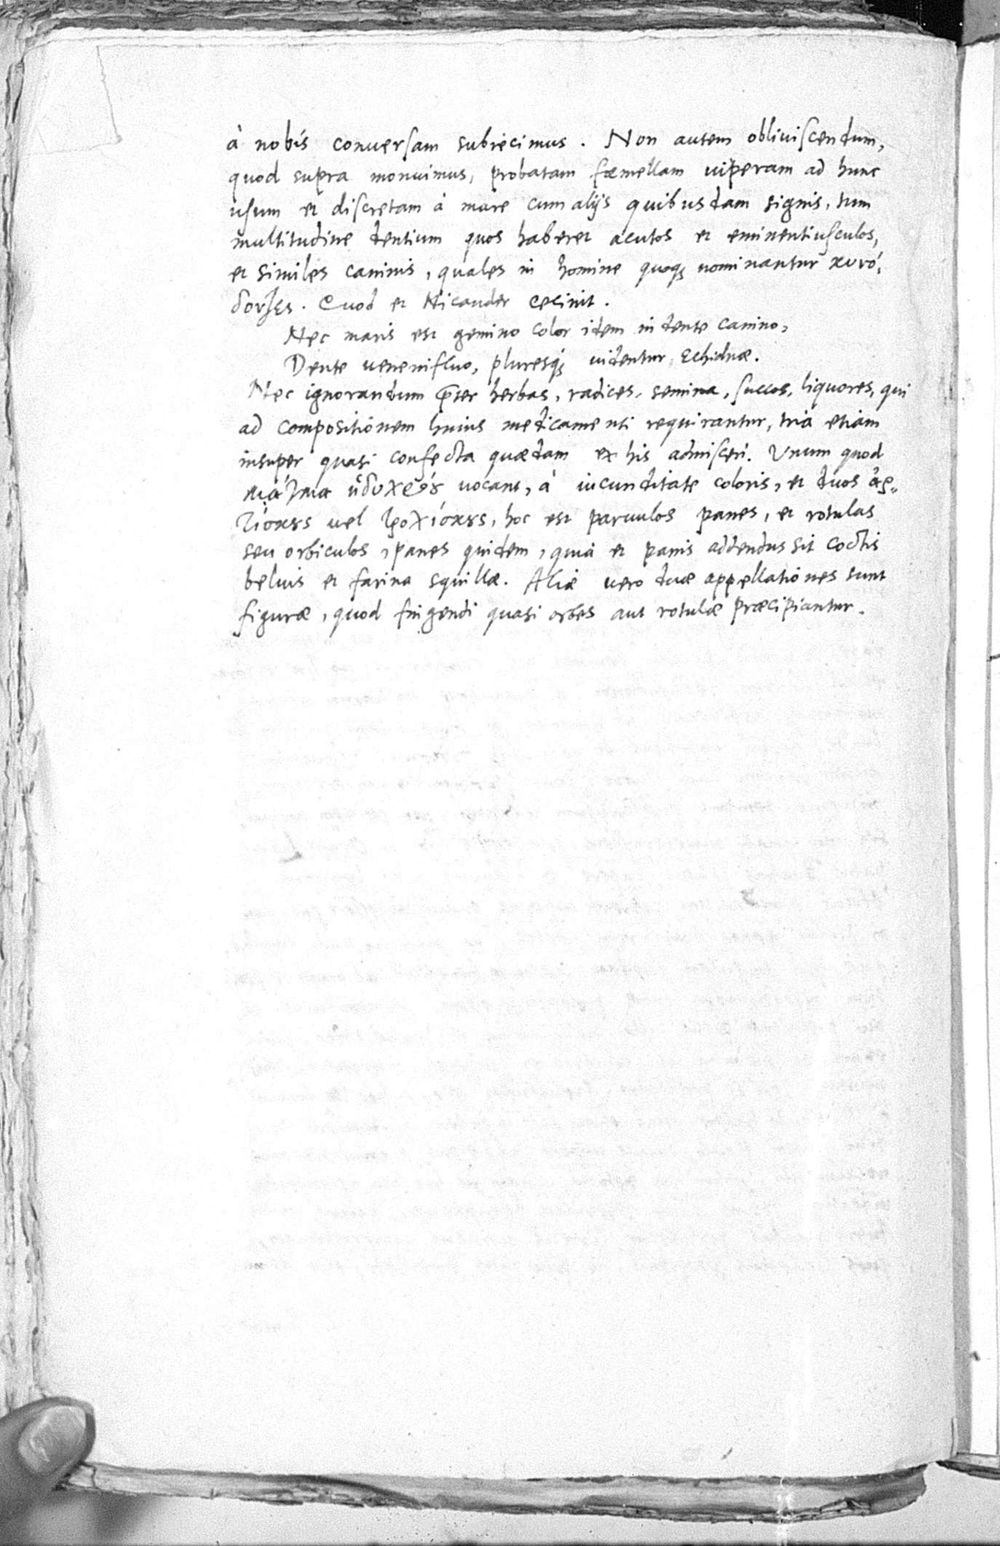 à nobis conuersam subiecimus. Non autem obliuiscendum,
quod supra monuimus, probatam fœmellam uiperam ad hunc
usum et discretam à mare cum alijs quibusdam signis, tum
multitudine dentium quos haberet acutos et eminentiusculos,
et similes caninis, quales in homine quoq; nominantur κυνό-
δοντες. Quod et Nicander cecinit.
Nec maris est gemino color idem in dente canino,
Dente uenenifluo, pluresq; uidentur Echidnæ.
Nec ignorandum p̄ter herbas, radices, semina, succos, liquores, qui
ad compositionem huius medicamenti requirantur, tria etiam
insuper quasi confecta quædam ex his admisceri. Vnum quod
μάγμα ἡδυχρόȣ uocant, à iucunditate coloris, et duos ἀρ-
τίσκȣς uel τροχίσκȣς, hoc est paruulos panes, et rotulas
seu orbiculos, panes quidem, quia et panis addendus sit coctis
beluis et farina squillæ. Aliæ vero duæ appellationes sunt
figuræ, quod fingendi quasi orbes aut rotulæ præcipiantur.